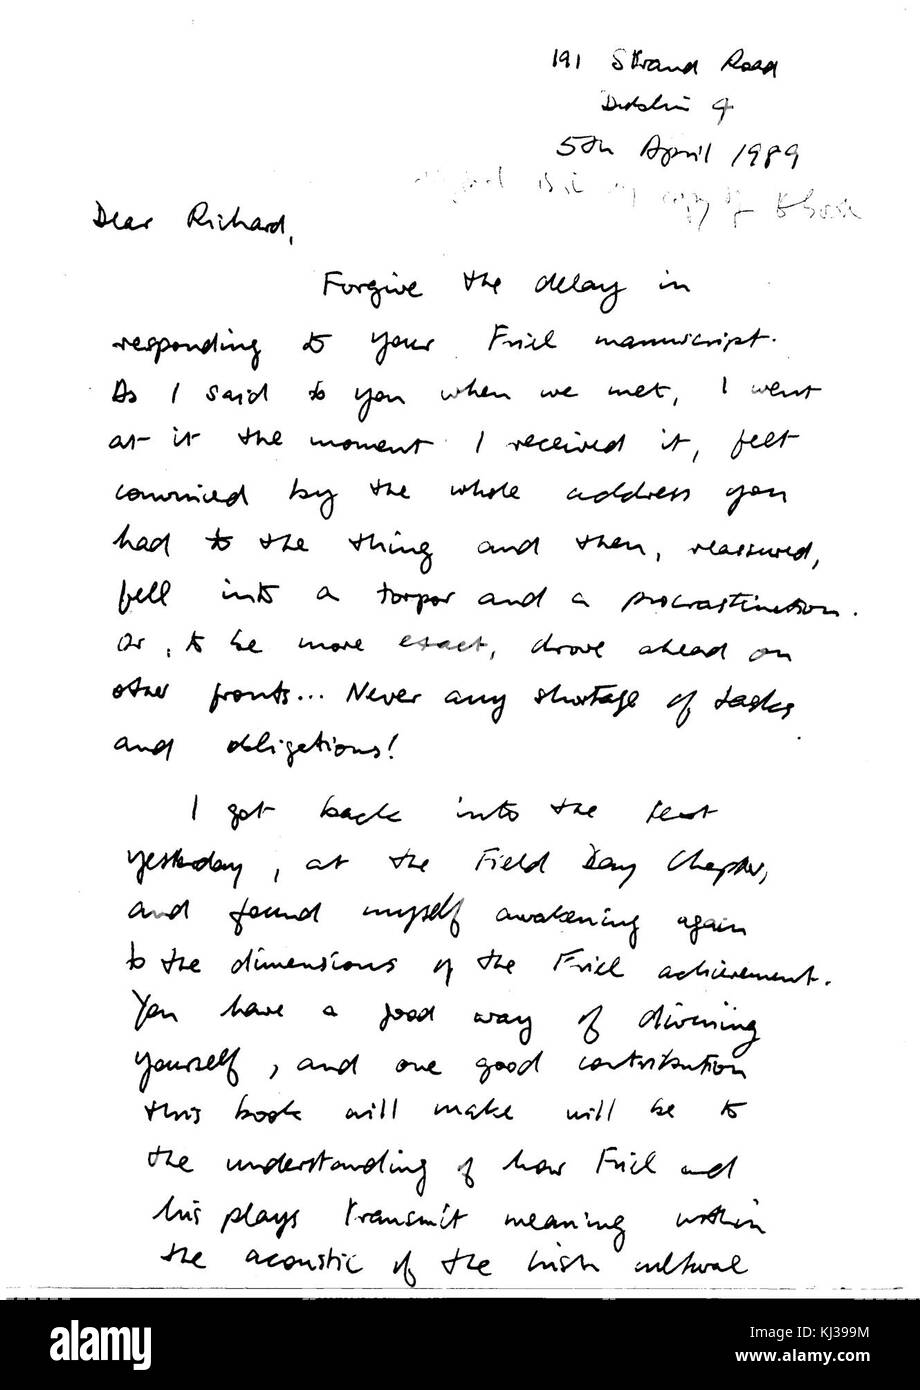 191 Strand Road
Dublin 4
5th April 1989
is in my copy of book
Dear Richard,
Forgive the delay in
responding to your Friel manuscript.
As I said to you when we met, I went
at it the moment I received it, felt
convinced by the whole address you
had to the thing and then, reassured,
fell into a torpor and a procrastination.
Or, to be more exact, drove ahead on
other fronts... Never any shortage of tasks
and obligations!
I got back into the text
yesterday, at the Field Day Chapter,
and found myself awakening again
to the dimensions of the Friel achievement.
You have a good way of divining
yourself, and one good contribution
this book will make will be to
the understanding of how Friel and
his plays transmit meaning within
the acoustic of the Irish cultural
alamy
Image ID: KJ399M
www.alamy.com